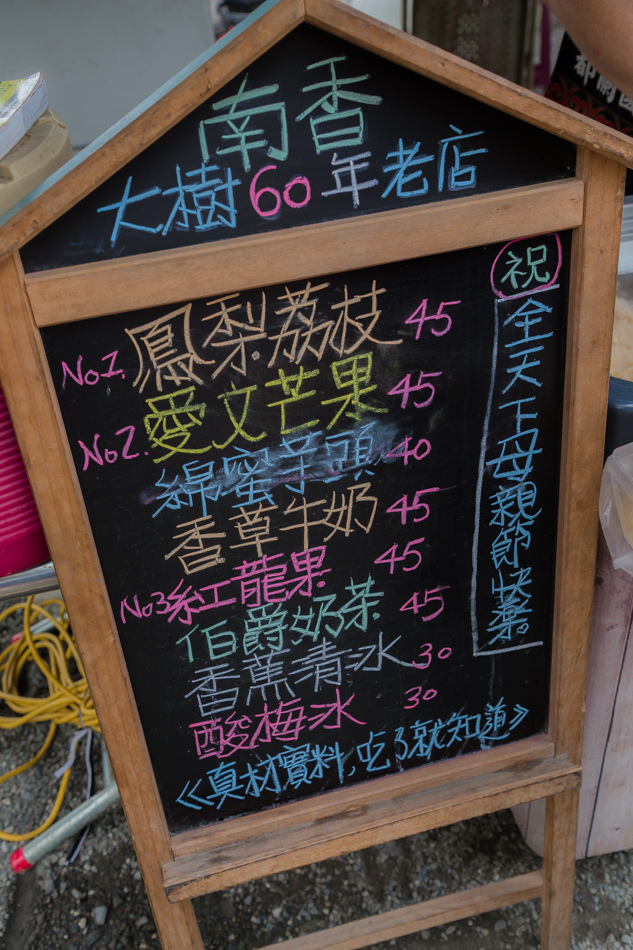 南香
大樹60年老店
No1. 鳳梨荔枝 45
No2. 愛文芒果 45
綿蜜芋頭 40
香草牛奶 45
No3 紅龍果 45
伯爵奶茶 45
香蕉清冰 30
酸梅冰 30
《真材實料,吃了就知道》
祝
全天下母親節快樂。